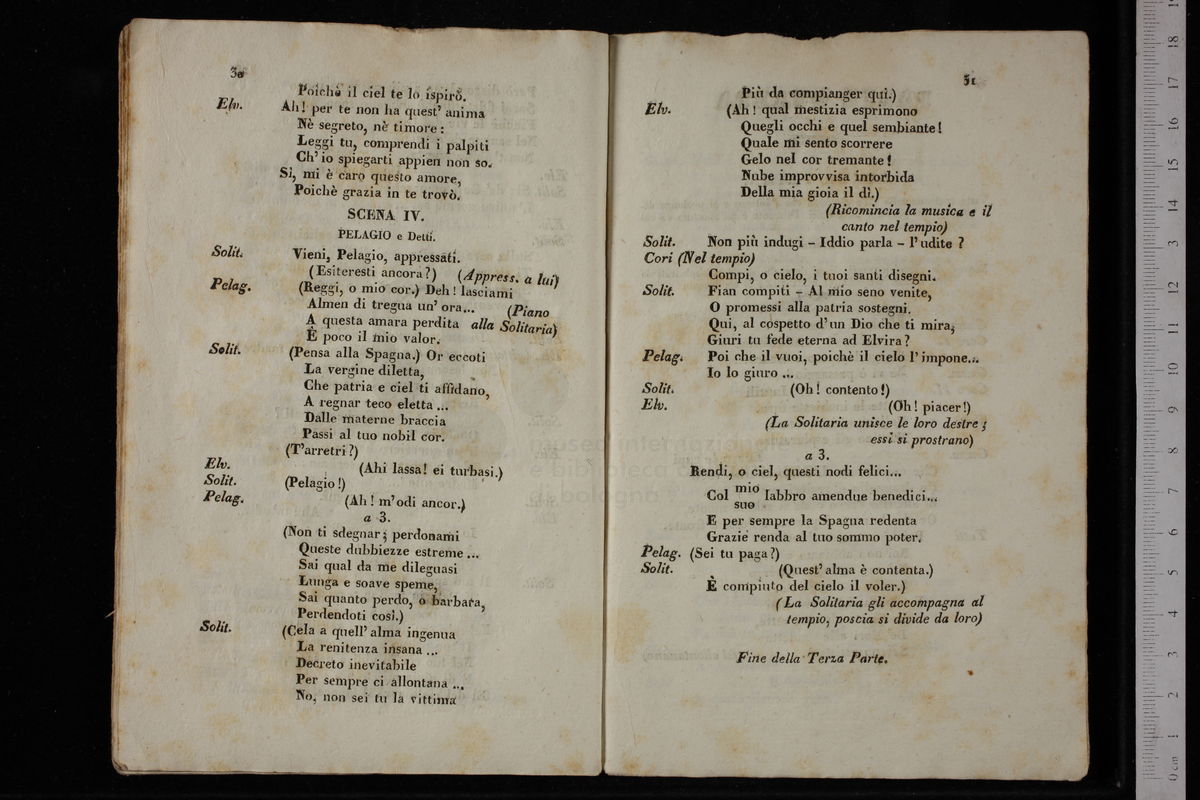 30
Poichè il ciel te lo ispirò.
Elv. Ah! per te non ha quest' anima
Nè segreto, nè timore:
Leggi tu, comprendi i palpiti
Ch' io spiegarti appien non so.
Sì, mi è caro questo amore,
Poichè grazia in te trovò.
SCENA IV.
PELAGIO e Detti.
Solit. Vieni, Pelagio, appressati.
(Esiteresti ancora?) (Appress. a lui)
Pelag. (Reggi, o mio cor.) Deh! lasciami
Almen di tregua un' ora... (Piano
A questa amara perdita alla Solitaria)
È poco il mio valor.
Solit. (Pensa alla Spagna.) Or eccoti
La vergine diletta,
Che patria e ciel ti affidano,
A regnar teco eletta ...
Dalle materne braccia
Passi al tuo nobil cor.
(T'arretri?)
Elv. (Ahi lassa! ei turbasi.)
Solit. (Pelagio!)
Pelag. (Ah! m'odi ancor.)
a 3.
(Non ti sdegnar; perdonami
Queste dubbiezze estreme ...
Sai qual da me dileguasi
Lunga e soave speme,
Sai quanto perdo, o barbara,
Perdendoti così.)
Solit. (Cela a quell' alma ingenua
La renitenza insana ...
Decreto inevitabile
Per sempre ci allontana ...
No, non sei tu la vittima
31
Più da compianger qui.)
Elv. (Ah! qual mestizia esprimono
Quegli occhi e quel sembiante!
Quale mi sento scorrere
Gelo nel cor tremante!
Nube improvvisa intorbida
Della mia gioia il dì.)
(Ricomincia la musica e il
canto nel tempio)
Solit. Non più indugi – Iddio parla – l' udite ?
Cori (Nel tempio)
Compi, o cielo, i tuoi santi disegni.
Solit. Fian compiti – Al mio seno venite,
O promessi alla patria sostegni.
Qui, al cospetto d' un Dio che ti mira,
Giuri tu fede eterna ad Elvira?
Pelag. Poi che il vuoi, poichè il cielo l' impone...
Io lo giuro ...
Solit. (Oh! contento!)
Elv. (Oh! piacer!)
(La Solitaria unisce le loro destre;
essi si prostrano)
a 3.
Rendi, o ciel, questi nodi felici...
Col mio labbro amendue benedici...
suo
E per sempre la Spagna redenta
Grazie renda al tuo sommo poter.
Pelag. (Sei tu paga?)
Solit. (Quest' alma è contenta.)
È compiuto del cielo il voler.)
(La Solitaria gli accompagna al
tempio, poscia si divide da loro)
Fine della Terza Parte.